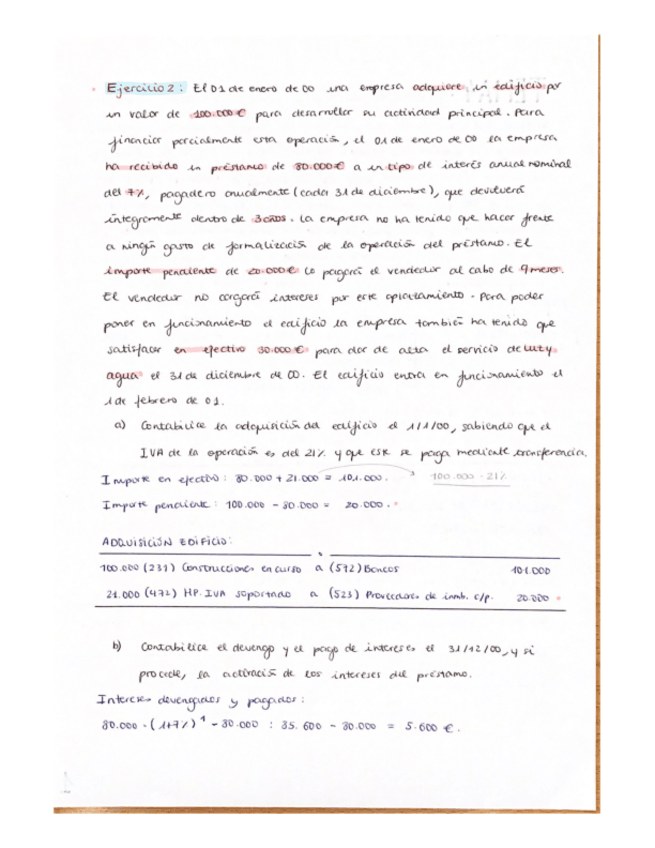 Ejercicio 2: El 01 de enero de 00 una empresa adquiere un edificio por
un valor de 100.000€ para desarrollar su actividad principal. Para
financiar parcialmente esta operación, el 01 de enero de 00 la empresa
ha recibido un préstamo de 80.000€ a un tipo de interés anual nominal
del 7%, pagadero anualmente (cada 31 de diciembre), que devolverá
íntegramente dentro de 3 años. La empresa no ha tenido que hacer frente
a ningún gasto de formalización de la operación del préstamo. El
importe pendiente de 20.000€ lo pagará el vendedor al cabo de 9 meses.
El vendedor no cargará intereses por este aplazamiento. Para poder
poner en funcionamiento el edificio la empresa también ha tenido que
satisfacer en efectivo 30.000€ para dar de alta el servicio de luz y
agua el 31 de diciembre de 00. El edificio entra en funcionamiento el
1 de febrero de 01.
a) Contabilice la adquisición del edificio el 1/1/00, sabiendo que el
IVA de la operación es del 21% y que este se paga mediante transferencia.
Importe en efectivo: 80.000 + 21.000 = 101.000. 100.000 · 21%
Importe pendiente: 100.000 - 80.000 = 20.000.
ADQUISICIÓN EDIFICIO:
100.000 (231) Construcciones en curso a (572) Bancos 101.000
21.000 (472) HP. IVA soportado a (523) Proveedores de inmb. c/p. 20.000
b) Contabilice el devengo y el pago de intereses el 31/12/00, y si
procede, la activación de los intereses del préstamo.
Intereses devengados y pagados:
80.000 · (1+7%)1 - 80.000 : 85.600 - 80.000 = 5.600 €.